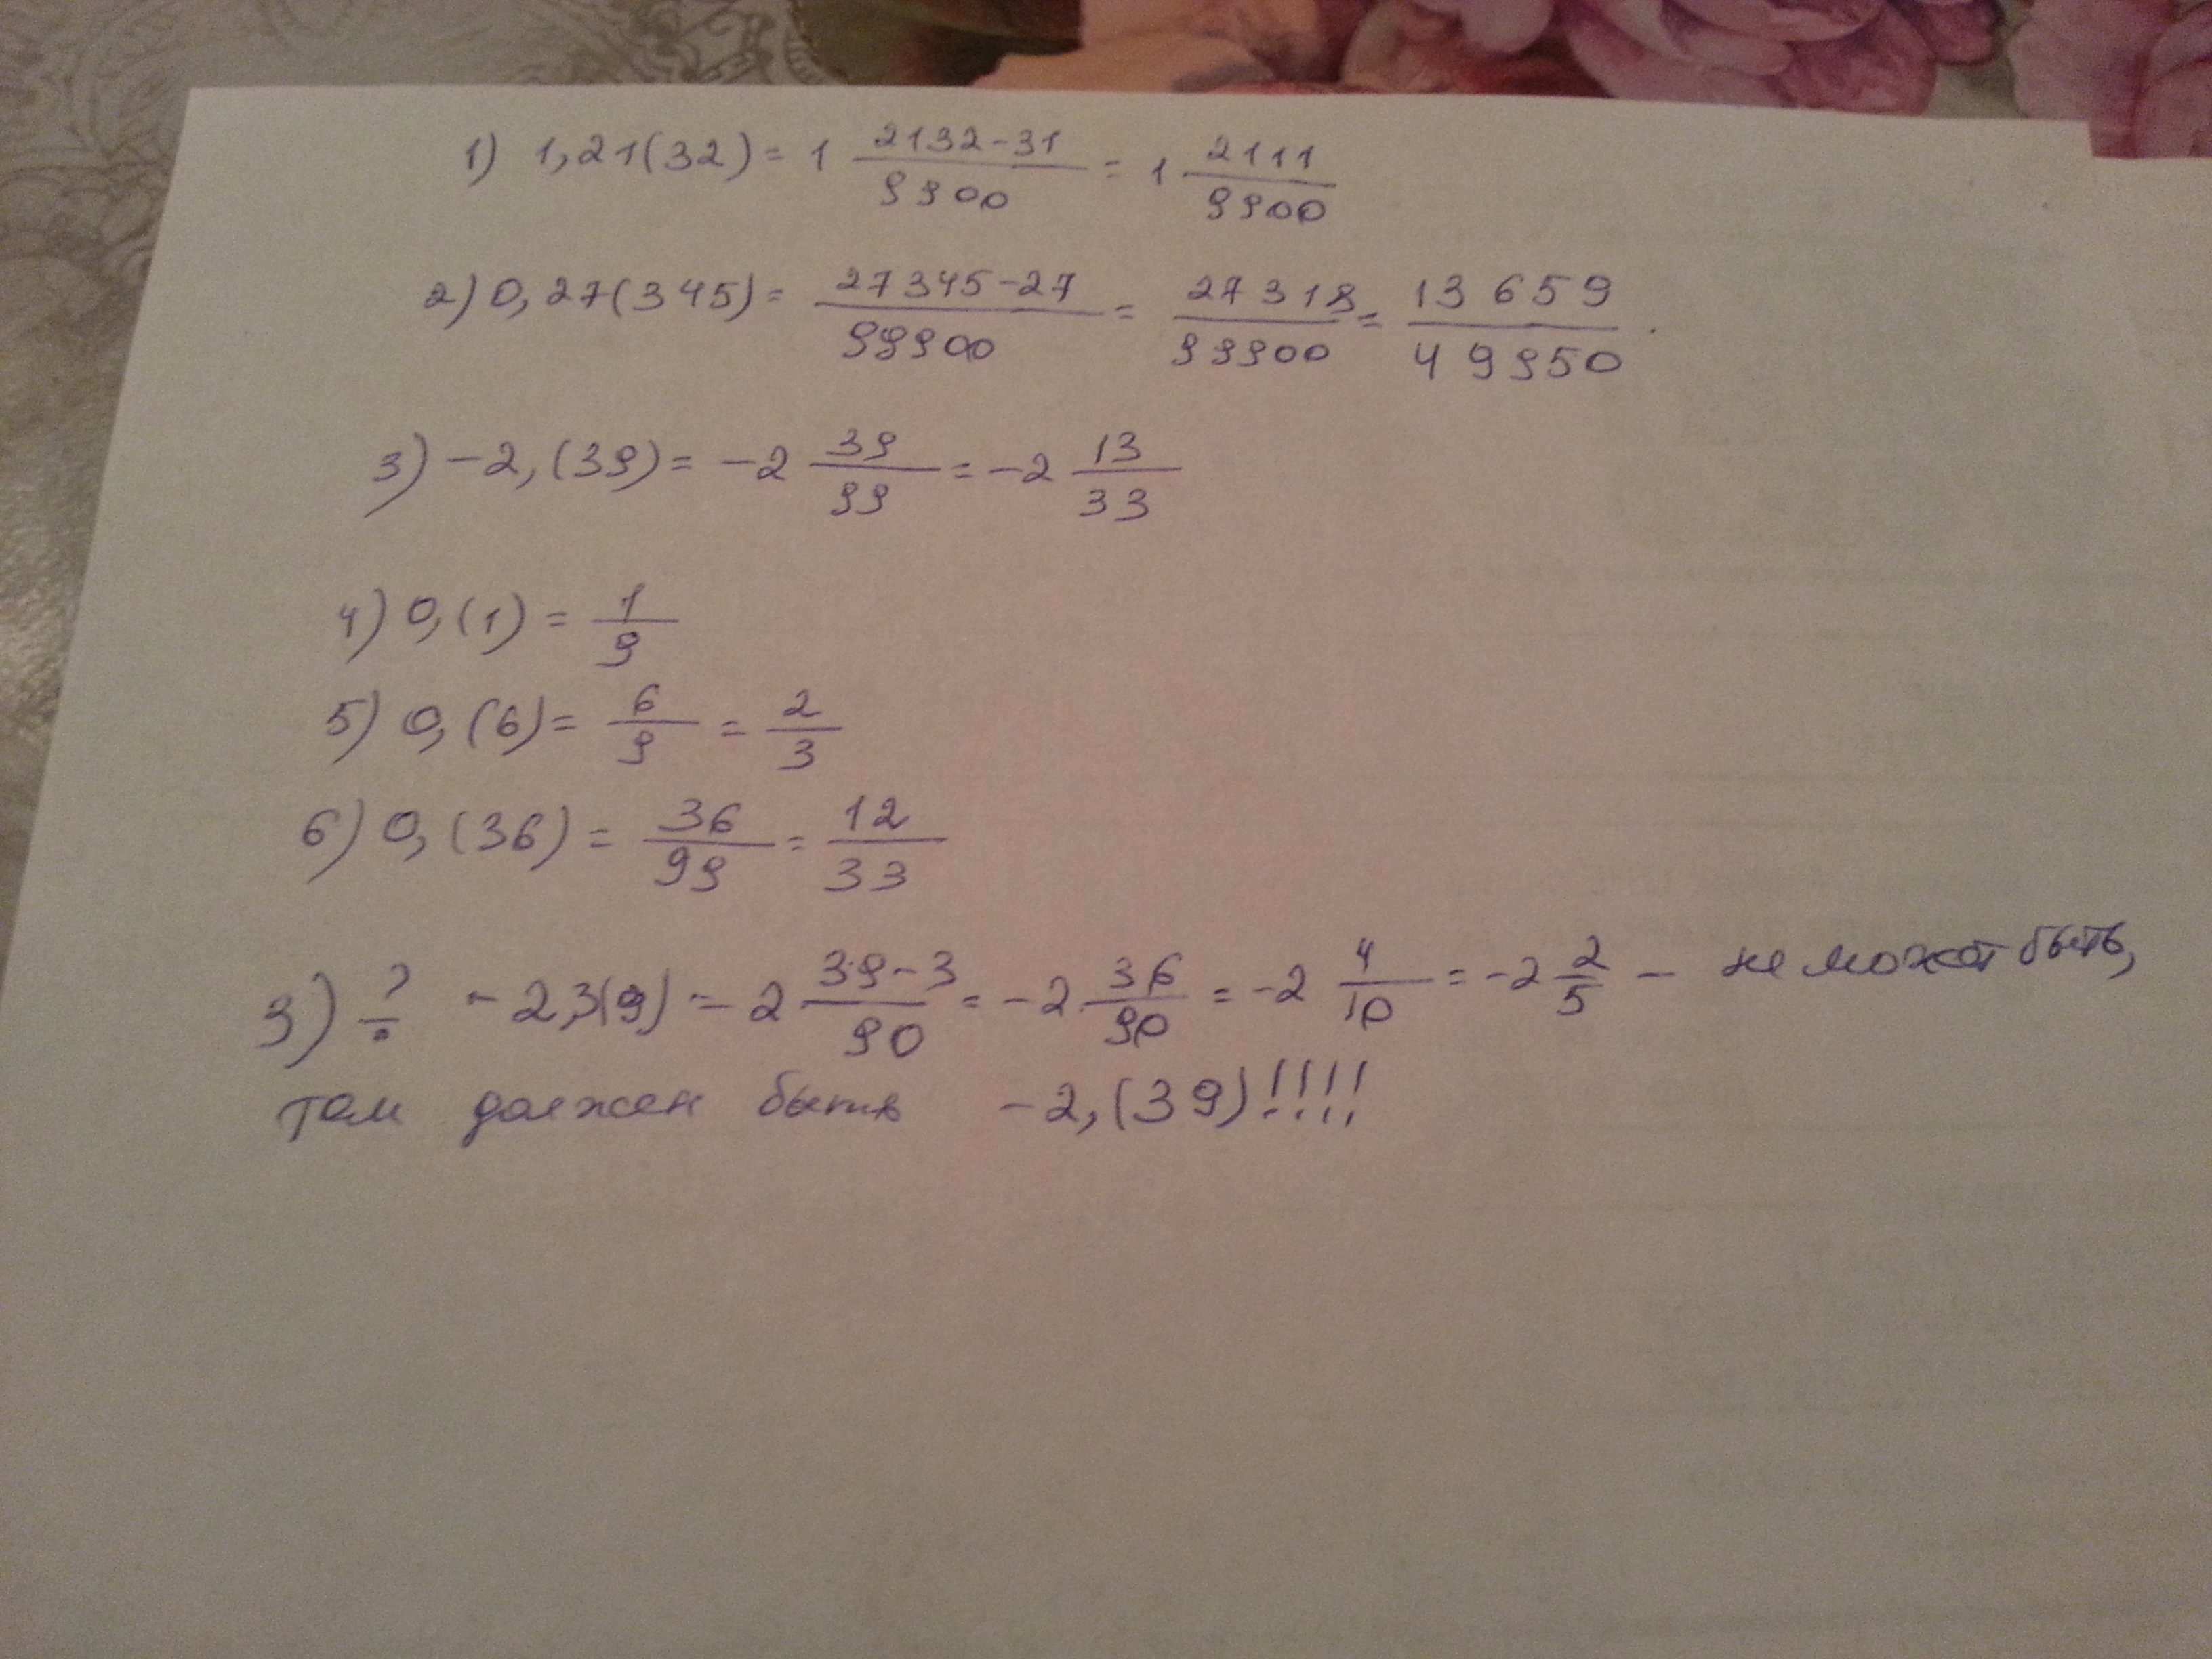 1) 1,21(32) = 1 2132-31/9900 = 1 2111/9900
2) 0,27(345) = 27345-27/99900 = 27318/99900 = 13659/49950.
3) -2,(39) = -2 39/99 = -2 13/33
4) 0,(1) = 1/9
5) 0,(6) = 6/9 = 2/3
6) 0,(36) = 36/99 = 12/33
3) ? - 2,3(9) = - 2 39-3/90 = -2 36/90 = -2 4/10 = -2 2/5 - не может быть,
там должен быть -2,(39)!!!!